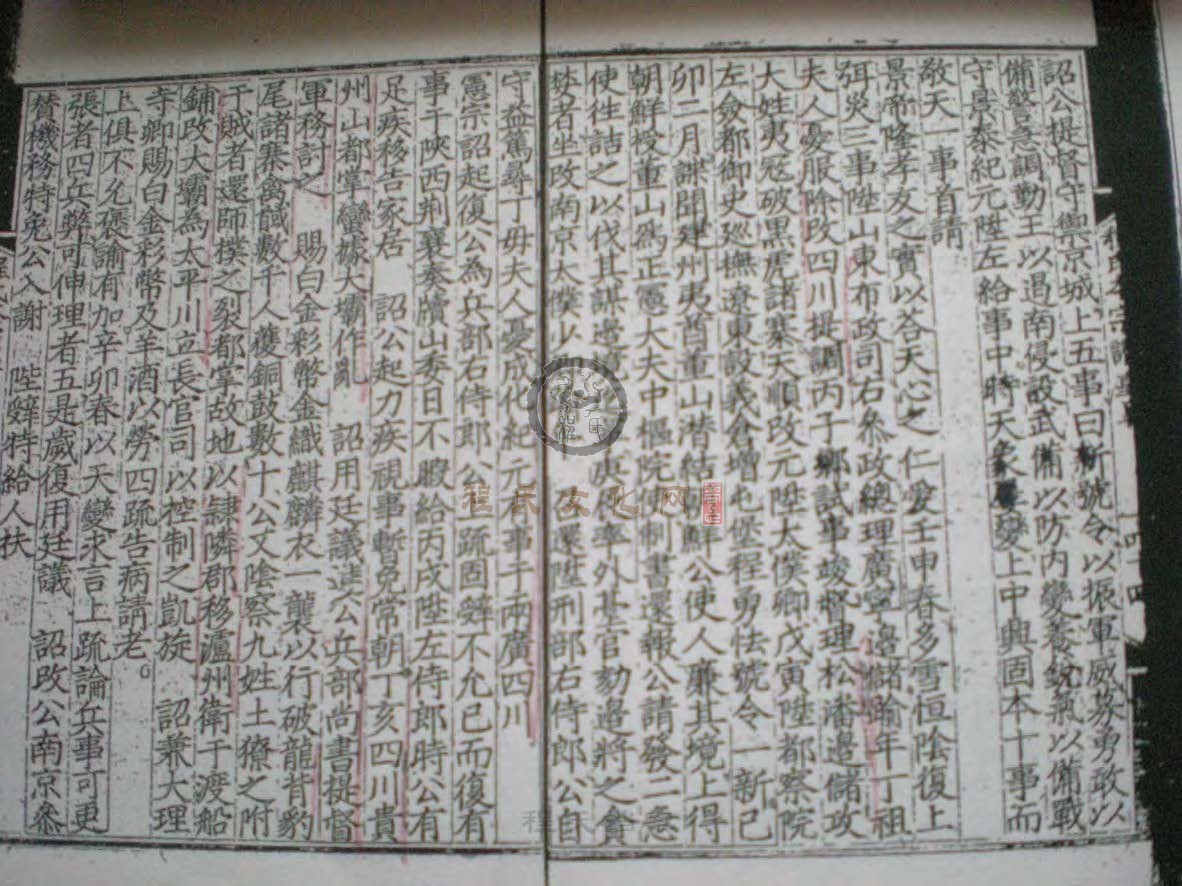 詔公提督守禦京城上五事曰新號令以振軍威募勇敢以
備警急調勤王以遏南侵敕武備以防內變養銳氣以備戰
守景泰紀元陞左給事中時天象變上中興固本十事而
敬天一事首請
景帝隆孝友之實以荅天心之仁愛壬申春多雪恒陰復上
弭災三事陞山東布政司右叅政總理廣寧邊儲踰年丁祖
夫人憂服除改四川提調丙子鄉試事竣督理松潘邊儲攻
大姓夷冦破黑虎諸寨天順改元陞太僕卿戊寅陞都察院
左僉都御史廵撫遼東設義倉增屯堡程勇怯號令一新己
卯二月諜聞建州夷酋董山潛結朝鮮公使人廉其境上得
朝鮮授董山爲正憲大夫中樞院使制書還報公請發二急
使徃詰之以伐其謀邊境 庚 率外甚官劾邊將之貪
婪者坐改南京太僕少 還陞刑部右侍郎公自
守益篤尋丁母夫人憂成化紀元有事于兩廣四川
憲宗詔起復公為兵部右侍郎公 疏固辭不允已而復有
事于陜西荆襄奏牘山委日不暇給丙戌陞左侍郎時公有
足疾移告家居 詔公起力疾視事暫免常朝丁亥四川貴
州山都掌蠻據大壩作亂 詔用廷議進公兵部尚書提督
軍務討之 賜白金彩幣金織麒麟衣一襲以行破龍背豹
尾諸寨禽馘數千人獲銅鼓數十公又陰察九姓土獠之附
于賊者還師撲之裂都掌故地以隷隣郡移瀘州衛于渡船
鋪改大壩為太平川立長官司以控制之凱旋 詔兼大理
寺卿賜白金彩幣及羊酒以勞四疏告病請老
上俱不允褒諭有加辛卯春以天變求言上疏論兵事可更
張者四兵弊可伸理者五是歲復用廷議 詔改公南京叅
贊機務特免公入謝 陛辭特給 人扶
6
程氏文化网